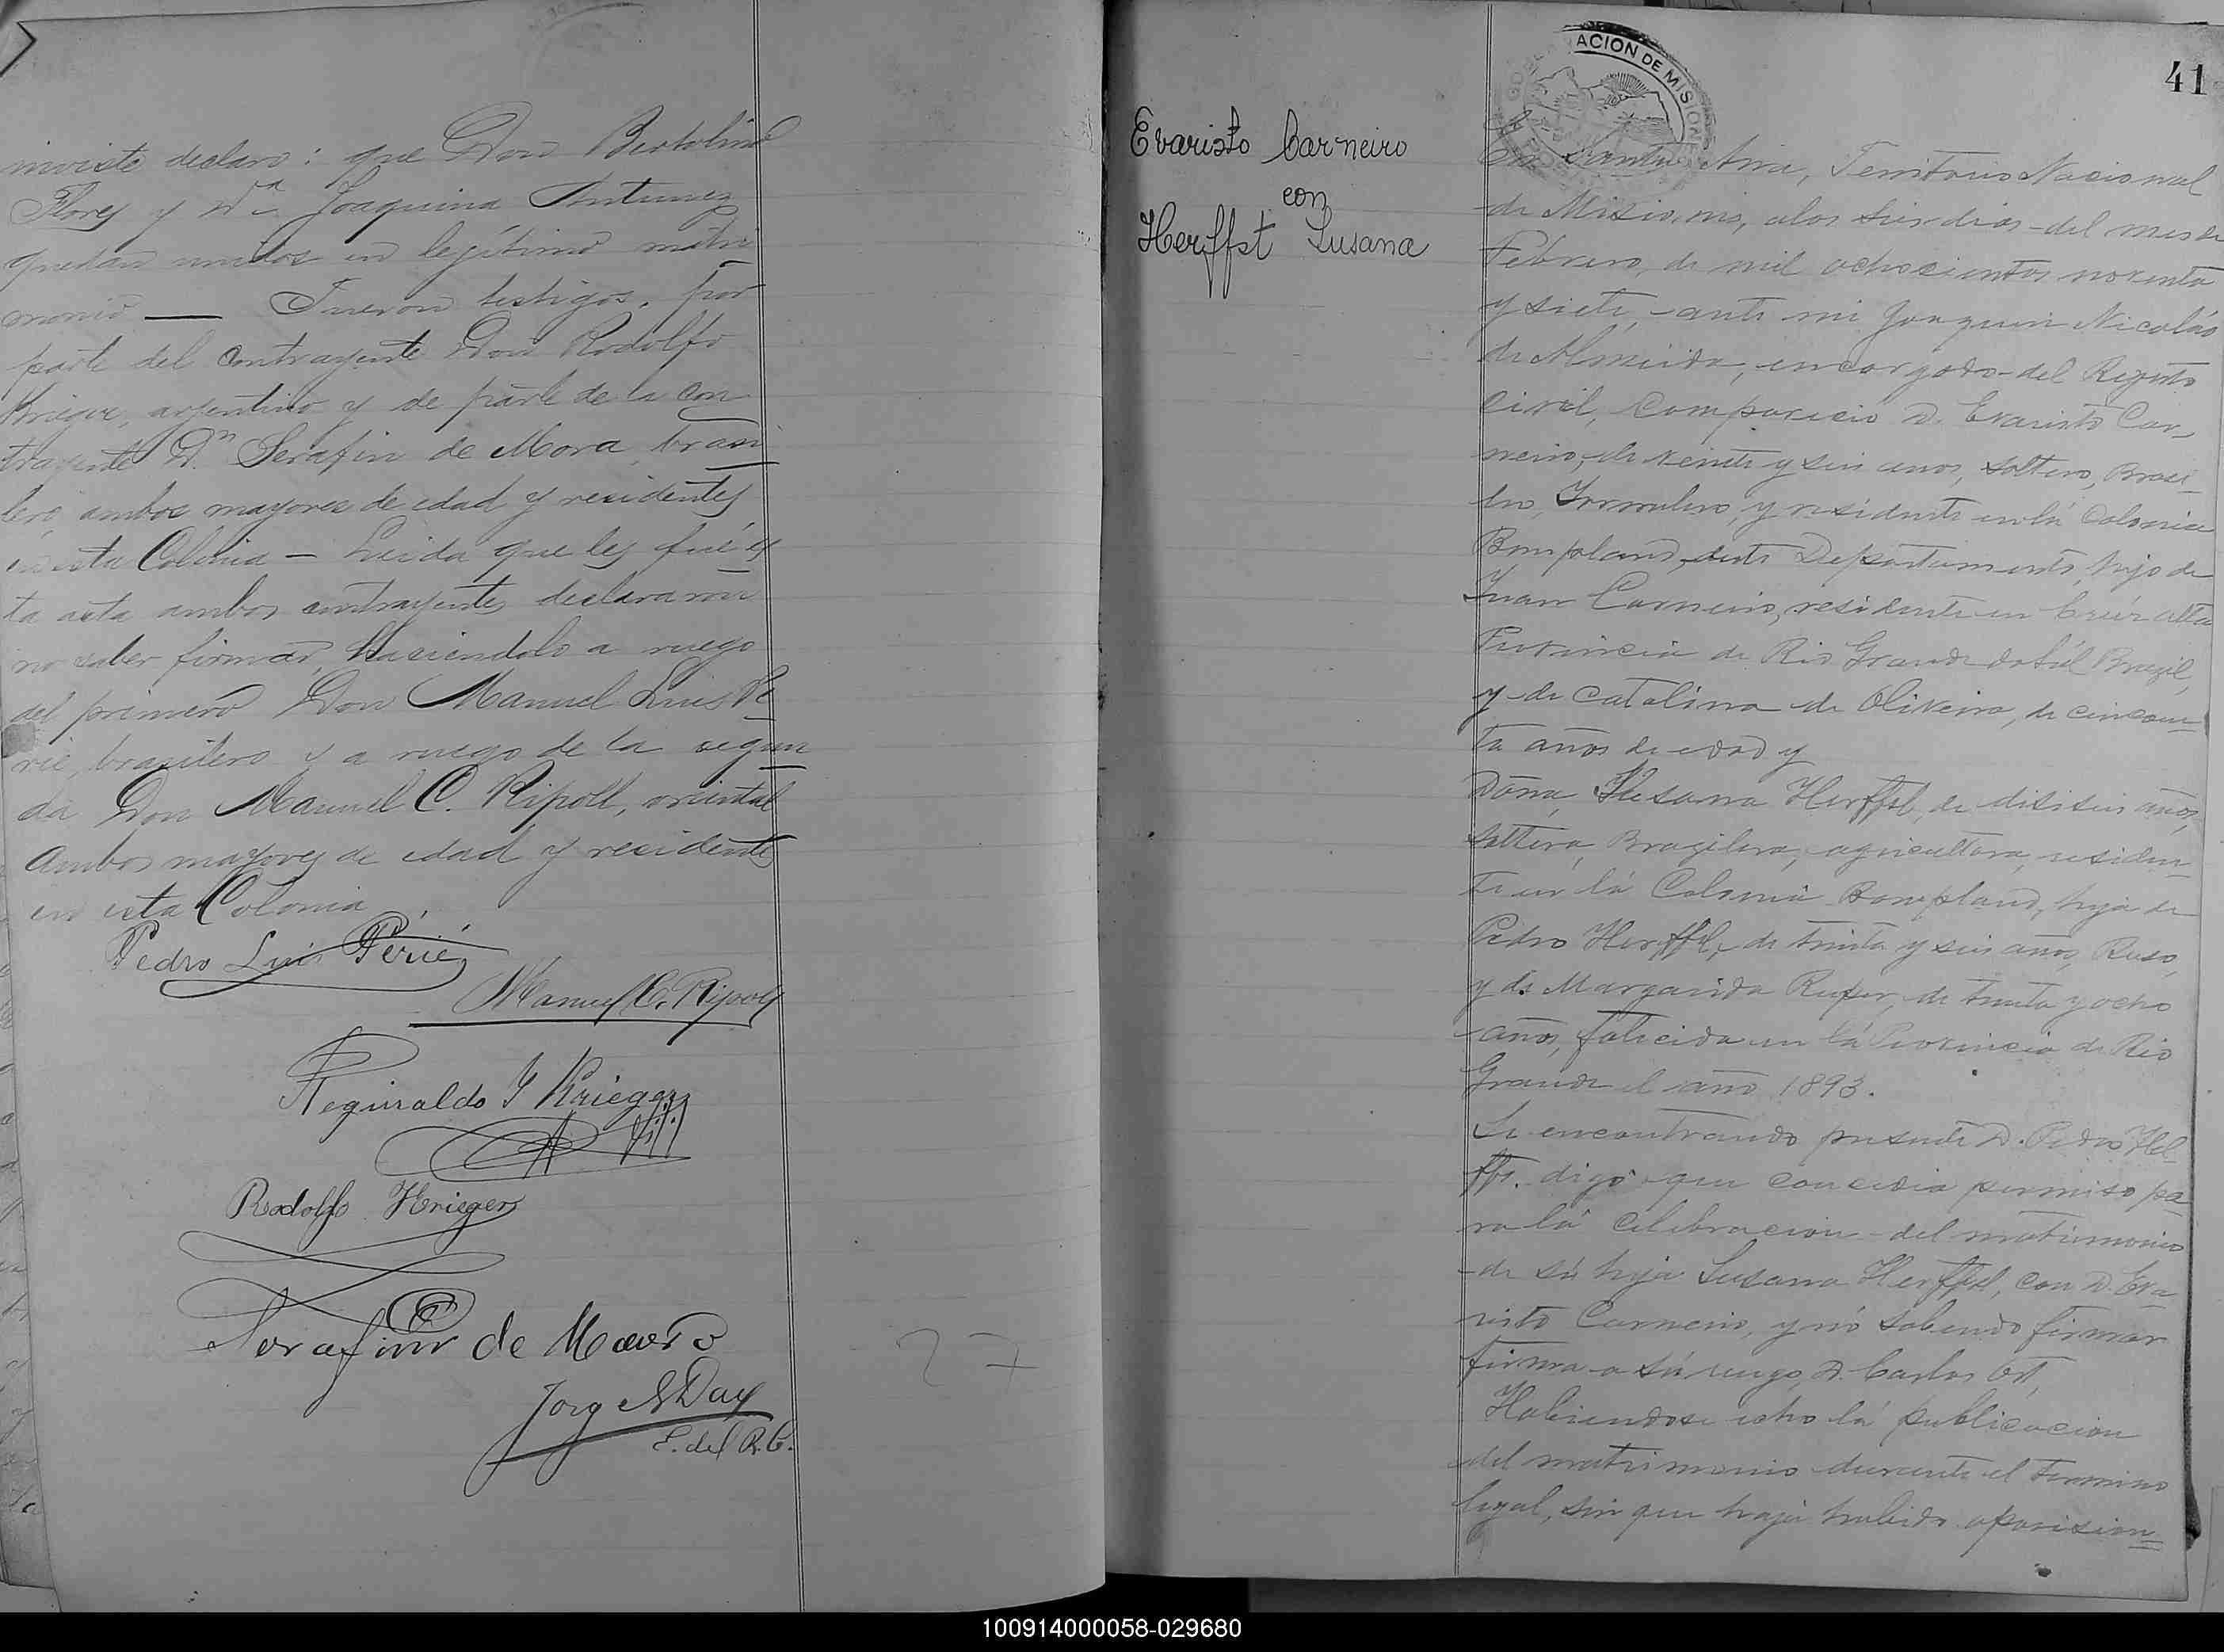 inviste declaro: que Don Bertolino
Flores y Dª Joaquina Antunez
quedan unidos en legítimo matri
monio — Fueron testigos, por
parte del contrayente Don Rodolfo
Krieger, argentino y de parte de la con
trayente Dn Serafin de Mora, brasi
lero ambos mayores de edad y residentes
en esta Colonia — Leida que les fué es
ta acta ambos contrayentes declararon
no saber firmar, haciendolo a ruego
del primero Don Manuel Luis Pe
rié, brasilero y a ruego de la segun
da Don Manuel C. Ripoll, oriental
ambos mayores de edad y residentes
en esta Colonia
Pedro Luis Perié
Manuel C. Ripoll
Reguinaldo J Krieger
Rodolfo Krieger
Serafim de Moura
Jorg N Day
E. del R. C.
27
41
GOBERNACION DE MISIONES
Evaristo Carneiro
con
Herffst Susana
En Santa Ana, Territorio Nacional
de Misiones, a los seis dias del mes de
Febrero, de mil ochocientos noventa
y siete, ante mi Joaquin Nicolás
de Almeida, encargado del Registo
Civil, comparecio D. Evaristo Car
neiro, de veinte y seis anos, soltero, Brasi
lro, Jornalero, y residente en lá Colonia
Bompland, deste Departamento, hijo de
Juan Carneiro, residente en Cruz alta
Provincia de Rio Grande do Súl Brazil,
y de Catalina de Oliveira, de cincoen
ta años de edad y
Doña Susana Herffst, de diseseis años,
soltera, Brazilera, agricultora, residen
te en lá Colonia Bompland, hija de
Pedro Herffst, de trinta y seis años, Ruso,
y de Margarida Ruper, de trinta y ocho
años, falicida en lá Provincia de Rio
Grande el año 1893.
Se encontrando presente D. Pedro Hel
ffst. digo que concedia permiso pa
ra lá celebracion del matrimonio
de sú hija Susana Herffst, con D. Eva
risto Carneiro, y nó sabendo firmar
firma a sú ruego, D. Carlos Ott,
Habiendose echo lá publicacion
del matrimonio durante el termino
legal, sin que haja habido oposision
100914000058-029680